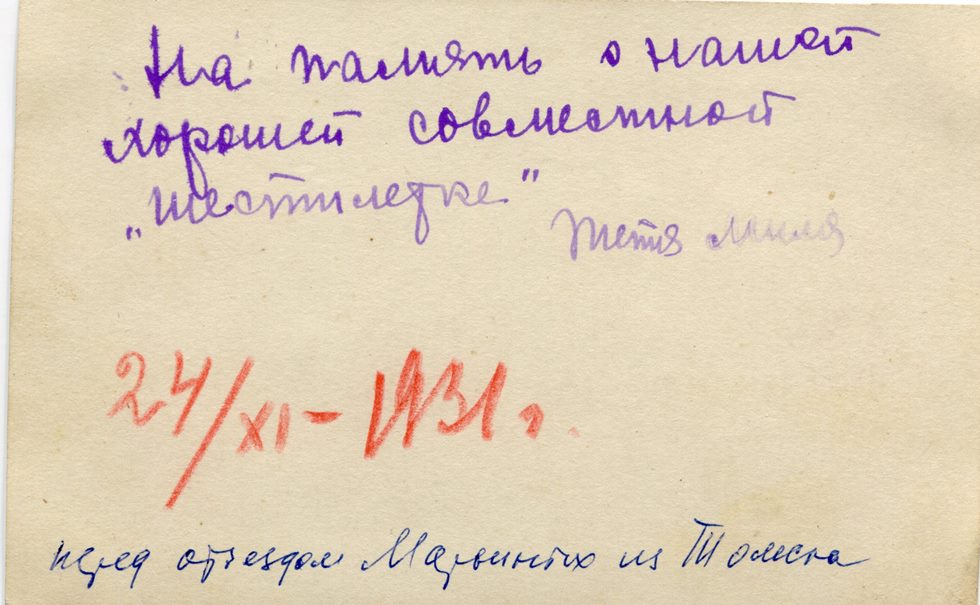 На память о нашей
хорошей совместной
„шестилетке"
Тетя Миля
24/XI – 1931 г.
перед отъездом Марьиных из Томска